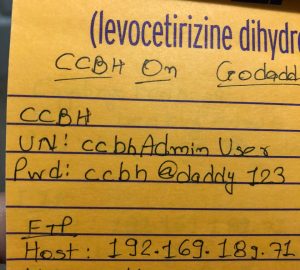 (levocetirizine dihydro
CCBH On Godadd
CCBH
UN: ccbhAdmin User
Pwd: ccbh@daddy 123
FTP
Host: 192.169.189.71